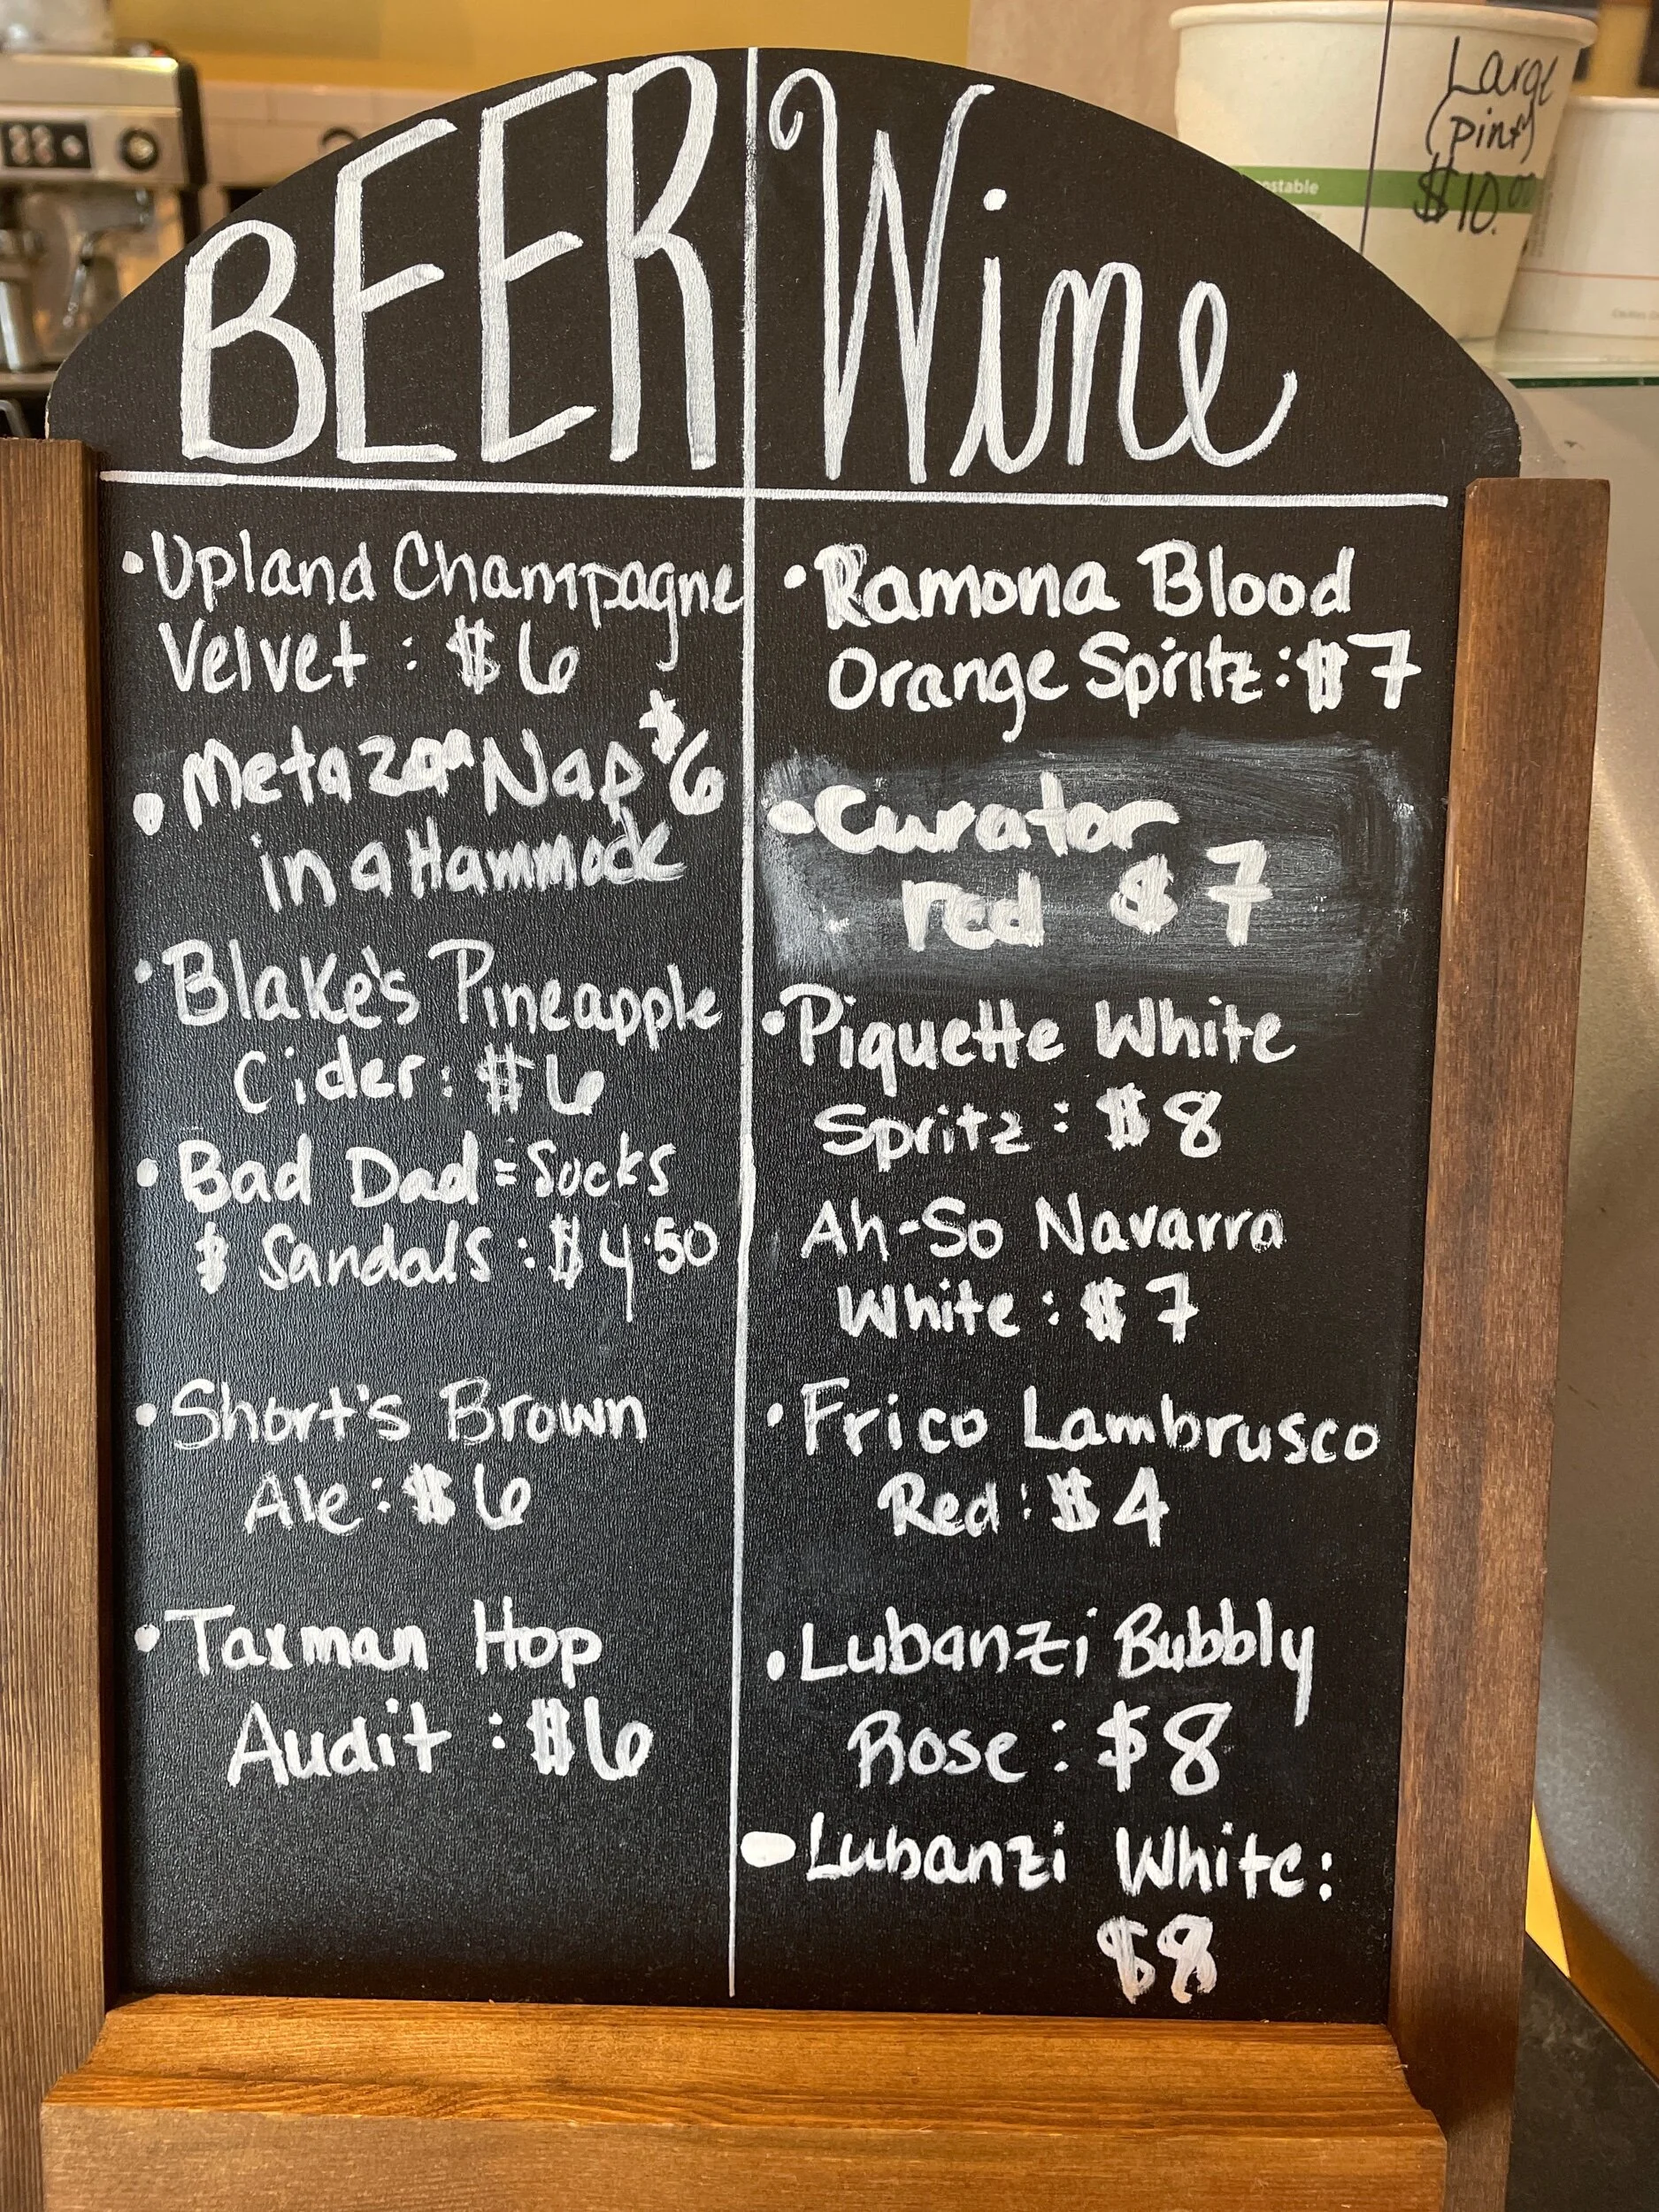 BEER
Wine
• Upland Champagne
Velvet : $6
• Metazoa Nap $6
in a Hammock
• Blake's Pineapple
Cider: $6
• Bad Dad = Socks
& Sandals : $4.50
• Short's Brown
Ale: $6
• Taxman Hop
Audit : $6
• Ramona Blood
Orange Spritz: $7
• Curator
red $7
• Piquette White
Spritz : $8
Ah-So Navarra
White : $7
• Frico Lambrusco
Red: $4
• Lubanzi Bubbly
Rose : $8
• Lubanzi White:
$8
Large
(pint)
$10.00